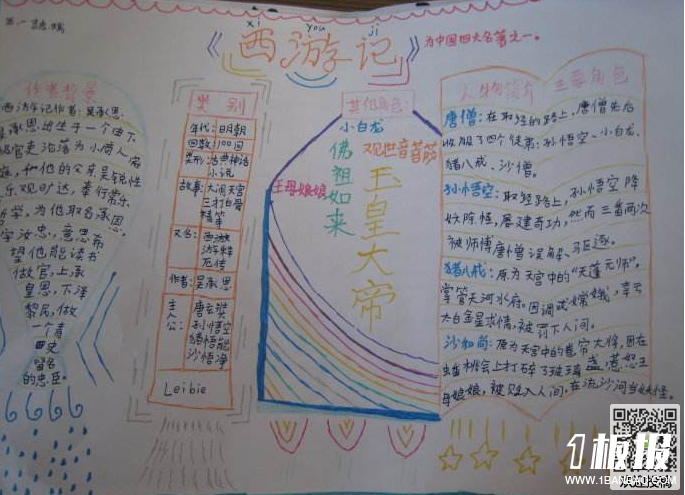 xi you ji
《西游记》
为中国四大名著之一。
作者背景
西游记作者：吴承恩。
吴承恩出生于一个由下
级官吏沦落为小商人
乐观旷达，奉行常乐
哲学，为他取名承恩，
字汝忠，意思希
望他能读书
做官，上承
皇恩，下泽
黎民，做
一个青
史
留名
的忠臣。
类别
年代：明朝
回数：100回
类形：浩典神话
小说
故事：大闹天宫
三打白骨
精等
又名：西游
游释
厄传
作者：吴承恩
主人公：唐玄奘
孙悟空
猪悟能
沙悟净
Leibie
其他角色：
小白龙
佛祖如来
观世音菩萨
王母娘娘
玉皇大帝
人物简介 主要角色
唐僧：在取经的路上，唐僧先后
收服了四个徒弟：孙悟空、小白龙、
猪八戒、沙僧。
孙悟空：取经路上，孙悟空降
妖除怪，屡建奇功，然而三番两次
被师傅唐僧误解、驱逐。
猪八戒：原为天宫中的“天蓬元帅”，
掌管天河水府。因调戏嫦娥，幸云
太白金星求情，被罚下人间。
沙和尚：原为天宫中的卷帘大将，因在
蟠桃会上打碎了琉璃盏，惹怒王
母娘娘，被贬入人间，在流沙河当妖怪。
1板报
WWW.1BANBAO.COM